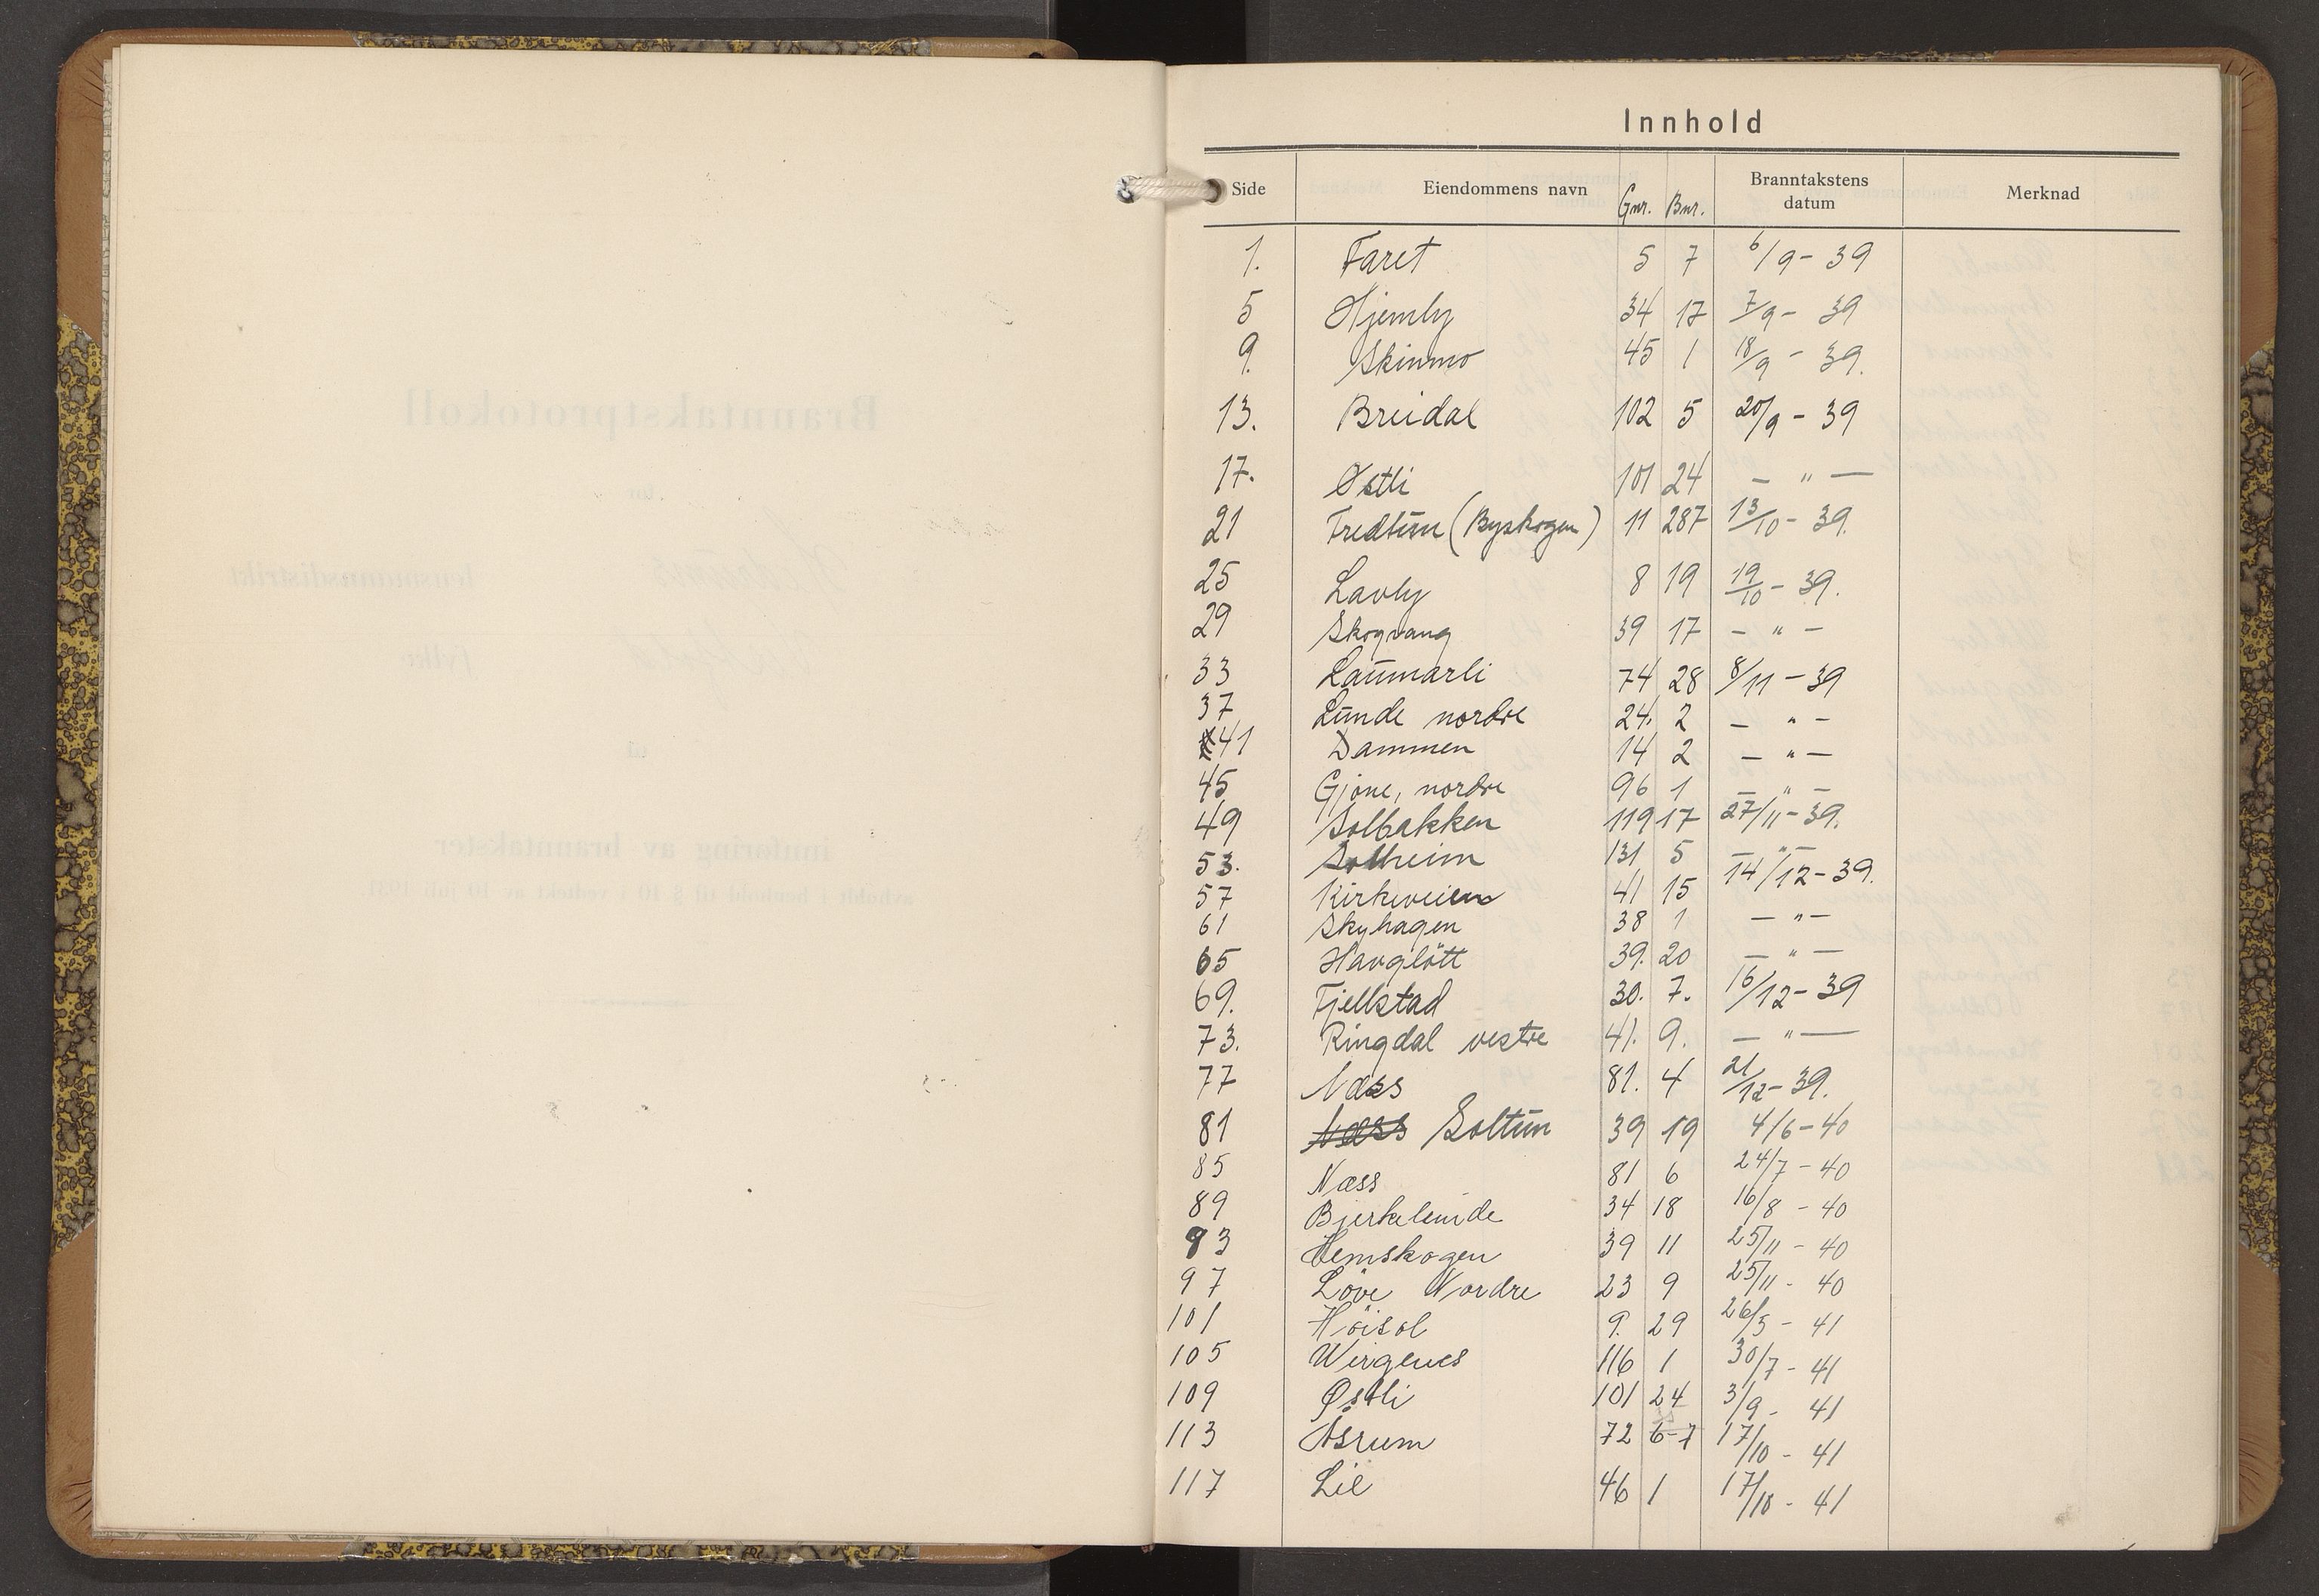 Innhold
Side Eiendommens navn Gnr. Bnr. Branntakstens datum Merknad
1. Faret 5 7 6/9 - 39
5 Hjemly 34 17 7/9 - 39
9. Skinmo 45 1 18/9 - 39.
13. Breidal 102 5 20/9 - 39
17. Østli 101 24 - " -
21 Fredtun (Byskogen) 11 287 13/10 - 39.
25 Lavly 8 19 19/10 - 39.
29 Skogvang 39 17 - " -
33 Laumarli 74 28 8/11 - 39
37 Lunde nordre 24. 2 - " -
41 Dammen 14 2 - " -
45 Gjøne, nordre 96 1 - " -
49 Solbakken 119 17 27/11 - 39.
53. Solheim 131 5 - " -
57 Kirkeveien 41 15 14/12 - 39.
61 Skyhagen 38 1 - " -
65 Havglött 39. 20 - " -
69. Fjellstad 30. 7. 16/12 - 39
73. Ringdal vestre 41. 9. - " -
77 Næss 81. 4 21/12 - 39.
81 Næss Soltun 39 19 4/6 - 40
85 Næss 81 6 24/7 - 40
89 Bjerkelunde 34 18 16/8 - 40
93 Hemskogen 39 11 25/11 - 40
97 Löve Nordre 23 9 25/11 - 40
101 Höisol 9. 29 26/5 - 41
105 Wirgenes 116 1 30/7 - 41
109 Østli 101 24 3/9 - 41
113 Åsrum 72 6-7 17/10 - 41
117 Lie 46 1 17/10 - 41